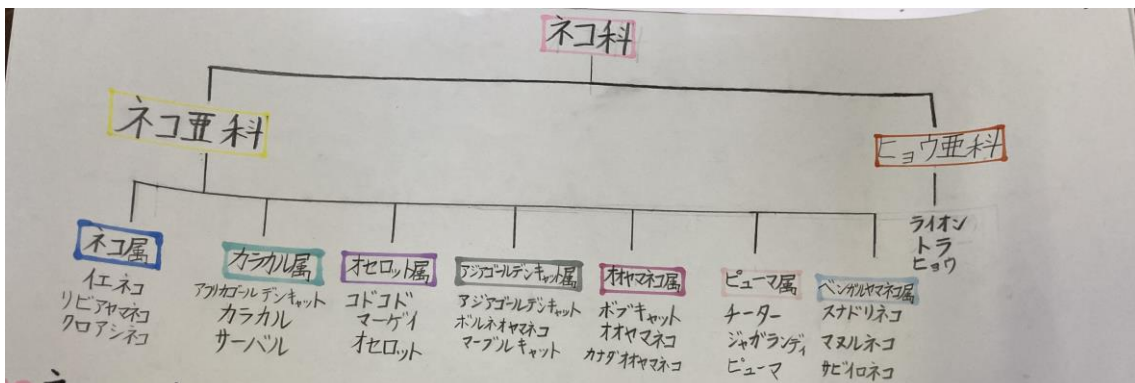 ネコ科
ネコ亜科
ヒョウ亜科
ネコ属
イエネコ
リビアヤマネコ
クロアシネコ
カラカル属
アフリカゴールデンキャット
カラカル
サーバル
オセロット属
コドコド
マーゲイ
オセロット
アジアゴールデンキャット属
アジアゴールデンキャット
ボルネオヤマネコ
マーブルキャット
オオヤマネコ属
ボブキャット
オオヤマネコ
カナダオオヤマネコ
ピューマ属
チーター
ジャガランディ
ピューマ
ベンガルヤマネコ属
スナドリネコ
マヌルネコ
サビイロネコ
ライオン
トラ
ヒョウ